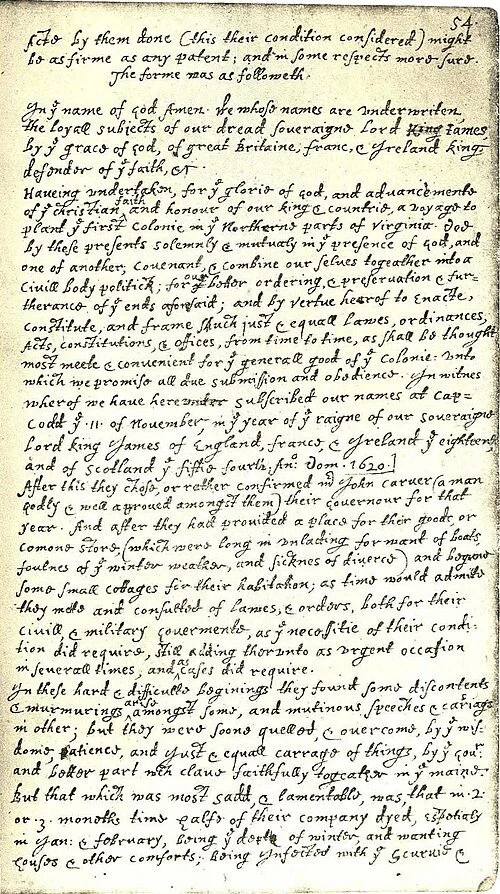 54
Acts by them done (this their condition considered) might
be as firme as any patent; and in some respects more sure.
The forme was as followeth.
In yͤ name of God Amen. We whose names are underwriten,
the loyall subjects of our dread soveraigne Lord King James
by yͤ grace of God, of great Britaine, franc, & Ireland king,
defender of yͤ faith, &c
Haveing undertaken, for yͤ glorie of God, and advancemente
of yͤ christian faith and honour of our king & countrie, a voyage to
plant yͤ first colonie in yͤ Northerne parts of Virginia. Doe
by these presents solemnly & mutualy in yͤ presence of God, and
one of another, covenant, & combine our selves togeather into a
Civill body politick; for our better ordering, & preservation & fur=
therance of yͤ ends aforesaid; and by vertue hearof to Enacte,
constitute, and frame shuch just & equall Lawes, ordinances,
Acts, constitutions, & offices, from time to time, as shall be thought
most meete & convenient for yͤ generall good of yͤ colonie: unto
which we promise all due submission and obedience. In witnes
wherof we have hereunder subscribed our names at Cap=
Codd yͤ .11. of November, in yͤ year of yͤ raigne of our soveraigne
Lord king James of England, france, & Ireland yͤ eighteenth
and of Scotland yͤ fiftie fourth. Anº: Dom. 1620.]
After this they chose, or rather confirmed mr John Carver (a man
godly & well approved amongst them) their Governour for that
year. And after they had provided a place for their goods, or
comone store, (which were long in unlading for want of boats,
foulnes of yͤ winter weather, and sicknes of diverce) and begune
some small cottages for their habitation; as time would admitte
they mette and consulted of Lawes, & orders, both for their
civill, & military Govermente, as yͤ necessitie of their condi-
tion did require, still adding therunto as urgent occasion
in severall times, and as cases did require.
In these hard & difficulte beginings they found some discontents
& murmurings arise amongst some, and mutinous speeches & cariags
in other; but they were soone quelled, & overcome, by yͤ wis-
dome, patience, and just & equall carrage of things, by yͤ Govr
and better part wch clave faithfully togeather in yͤ maine.
But that which was most sadd, & lamentable, was, that in .2.
or .3. moneths time halfe of their company dyed, espetialy
in Jan: & february, being yͤ depth of winter, and wanting
houses & other comforts; being Infected with yͤ Scurvie &